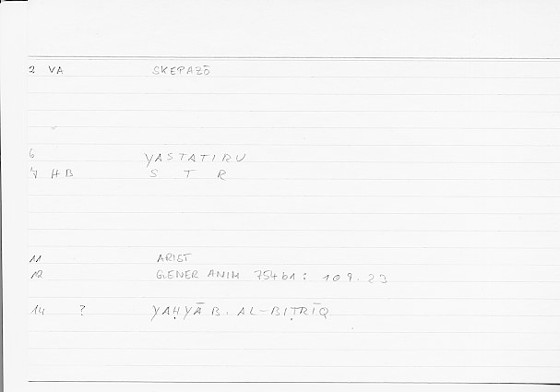 2 VA SKEPAZŌ
6 YASTATIRU
V HB S T R
11 ARIST
12 GENER ANIM 754b1: 109.23
14 ? YAḤYĀ B. AL-BIṬRĪQ